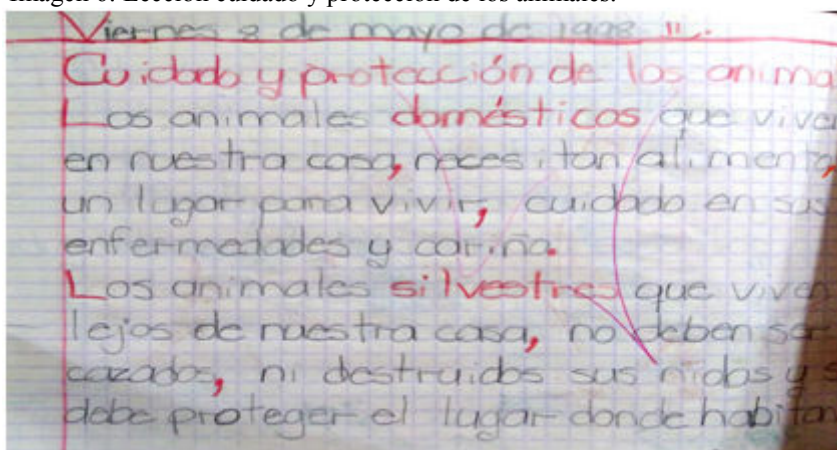 Imagen 6. Lección cuidado y protección de los animales.
Viernes 8 de mayo de 1998 11.
Cuidado y protección de los anima
Los animales domésticos que vive
en nuestra casa, necesitan alimento,
un lugar para vivir, cuidado en sus
enfermedades y cariño.
Los animales silvestres que viven
lejos de nuestra casa, no deben ser
cazados, ni destruidos sus nidos y s
debe proteger el lugar donde habitan